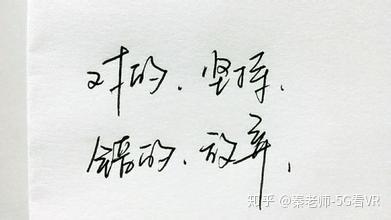 对的、坚持、
错的、放弃、
知乎 @秦老师-5G看VR